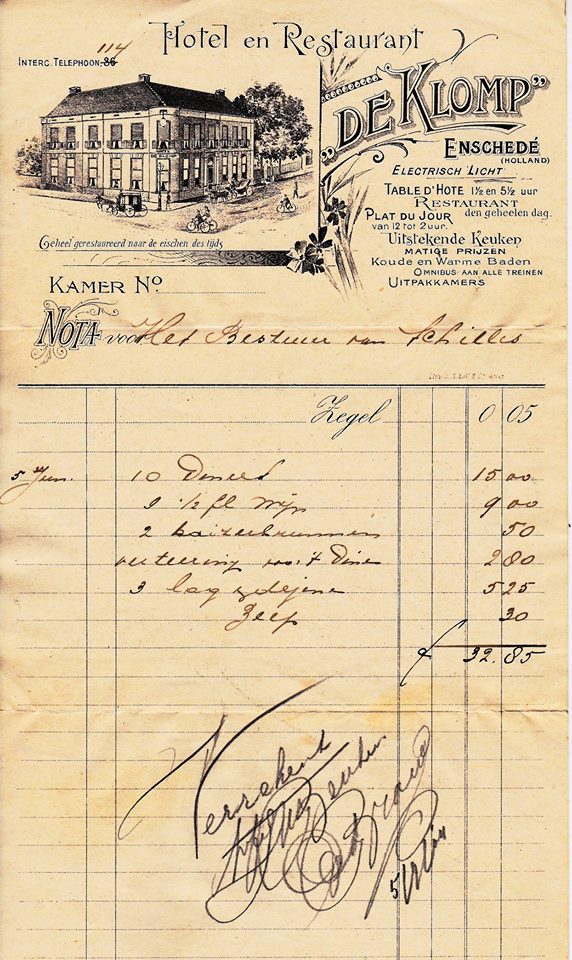 Hotel en Restaurant
114
INTERC. TELEPHOON, 36
„DE KLOMP”
ENSCHEDÉ
(HOLLAND)
ELECTRISCH LICHT
TABLE D'HOTE 1½ en 5½ uur
RESTAURANT
den geheelen dag.
PLAT DU JOUR
van 12 tot 2 uur.
Uitstekende Keuken
MATIGE PRIJZEN
Koude en Warme Baden
OMNIBUS AAN ALLE TREINEN
UITPAKKAMERS
Geheel gerestaureerd naar de eischen des tijds
KAMER No
NOTA voor Het Bestuur van
Zegel 0 05
5 Jun. 10 Diners 15 00
9 ½ fl Wijn 9 00
2 50
verteering voor 't Dine 2 80
3 5 25
Zeep 30
f 32.85